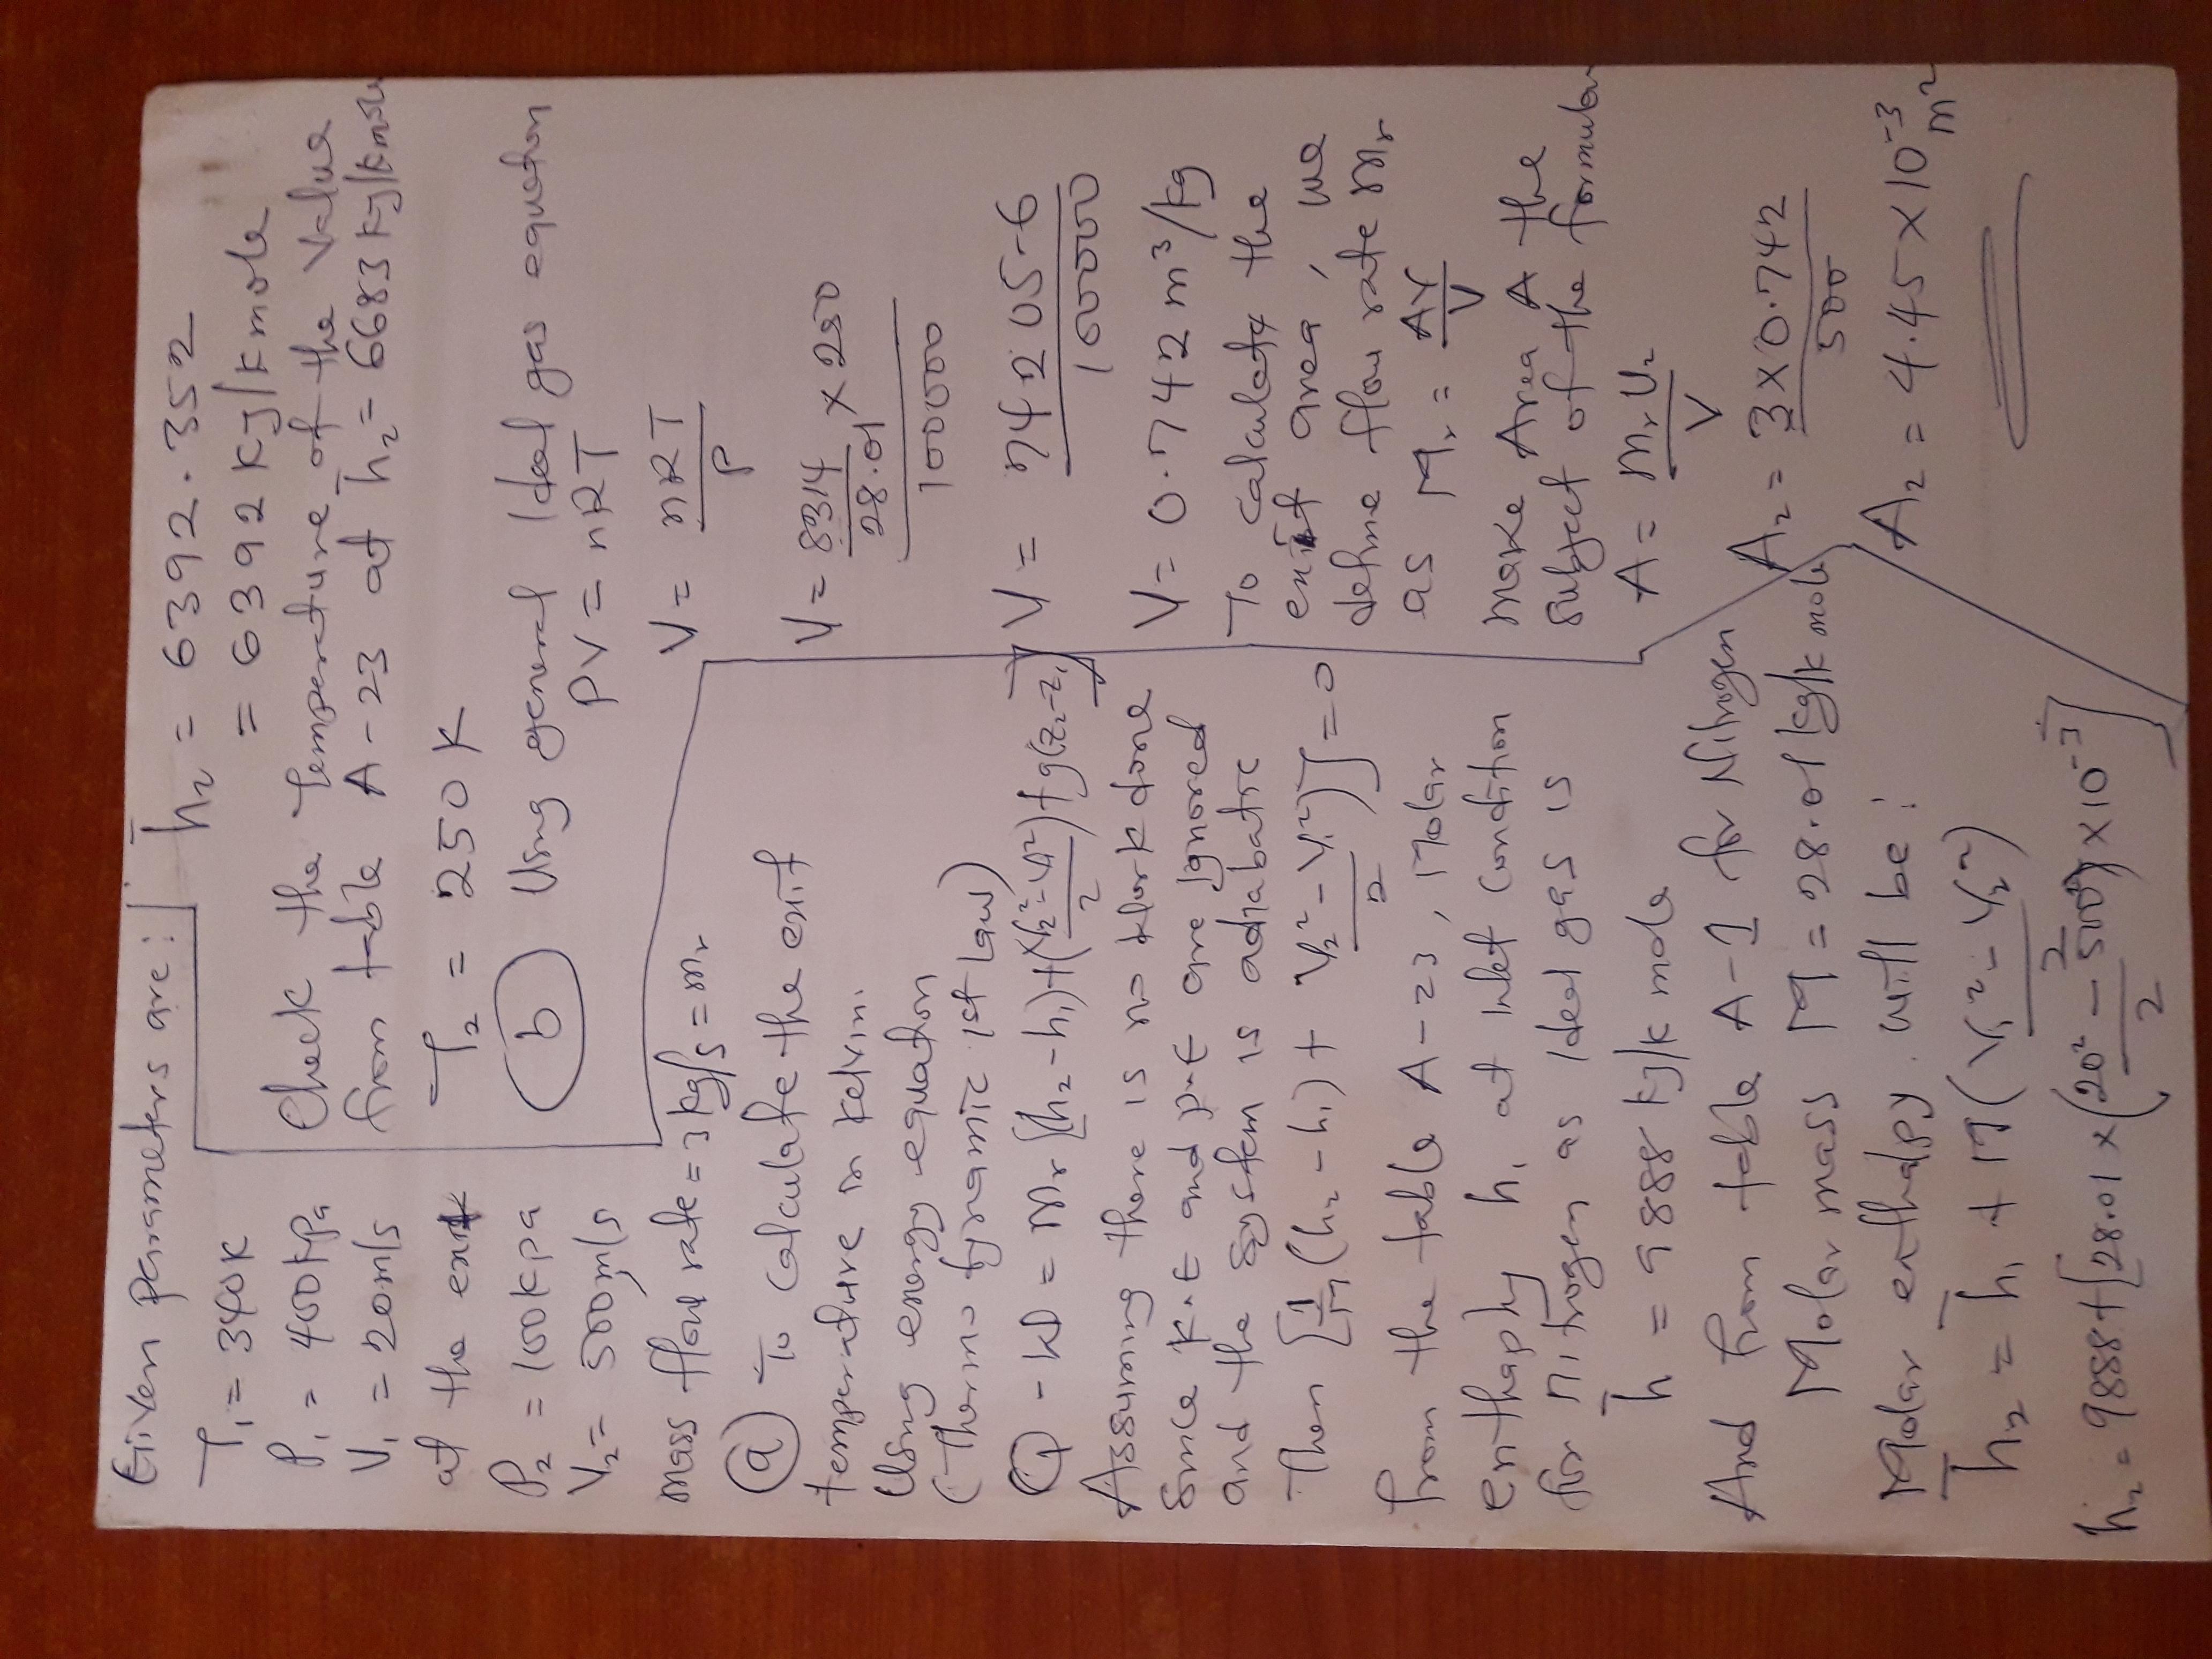 Given parameters are:
T₁ = 340K
P₁ = 400kPa
V₁ = 20m/s
at the exit
P₂ = 100kpa
V₂ = 500m/s
mass flow rate = 3kg/s = mᵣ
(a) To calculate the exit
temperature in kelvin.
Using energy equation
(Thermo dynamic 1st Law)
Q - W = mᵣ[(h₂-h₁)+(V₂²-V₁²)/2+g(z₂-z₁)]
Assuming there is no work done
Since K.E and P.E are ignored
and the system is adiabatic
Then [1/M(h₂-h₁) + V₂²-V₁²/2)] = 0
from the table A-23, molar
enthaphy h₁ at inlet condition
for nitrogen as ideal gas is
h̄ = 9888 kJ/kmole
And from table A-1 for Nitrogen
Molar mass M = 28.01 kg/kmole
Molar enthalpy will be:
h̄₂ = h̄₁ + M(V₁²-V₂²)/2
h₂ = 9888+[28.01×(20²-500²)/2×10⁻³]
h̄₂ = 6392.352
= 6392 KJ/Kmole
Check the Temperature of the value
from table A-23 at h̄₂ = 6683KJ/Kmole
T₂ = 250K
(b) Using general Ideal gas equation
PV = nRT
V = nRT/P
V = 8314/28.01 × 250/100000
V = 74205.6/100000
V = 0.742m³/kg
To calculate the
exit area, we
define flow rate mᵣ
as Mᵣ = AV/V
make Area A the
Subject of the formular
A = mᵣV₂/V
A₂ = 3×0.742/500
A₂ = 4.45×10⁻³m²